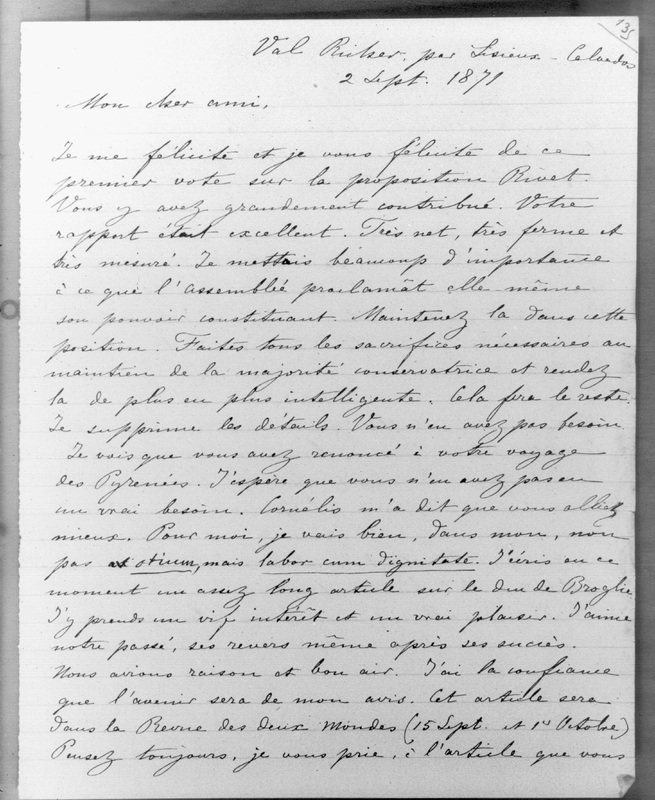 135
Val Richer, par Lisieux - Calvados
2 Sept. 1871
Mon cher ami,
Je me félicite et je vous félicite de ce
premier vote sur la proposition Rivet.
Vous y avez grandement contribué. Votre
rapport était excellent. Très net, très ferme et
très mesuré. Je mettais beaucoup d'importance
à ce que l'assemblée proclamât elle même
son pouvoir constituant. Maintenez la dans cette
position. Faites tous les sacrifices nécessaires au
maintien de la majorité conservatrice et rendez
la de plus en plus intelligente. Cela fera le reste.
Je supprime les détails. Vous n'en avez pas besoin.
Je vois que vous avez renoncé à votre voyage
des Pyrenées. J'espère que vous n'en avez pas eu
un vrai besoin. Cornélis m'a dit que vous alliez
mieux. Pour moi, je vais bien, dans mon, non
pas otium, mais labor cum dignitate. J'écris en ce
moment un assez long article sur le duc de Broglie.
J'y prends un vif intérêt et un vrai plaisir. J'aime
notre passé, ses revers même après ses succès.
Nous avions raison et bon air. J'ai la confiance
que l'avenir sera de mon avis. Cet article sera
dans la Revue des deux Mondes (15 Sept. et 1er Octobre)
Pensez toujours, je vous prie, à l'article que vous